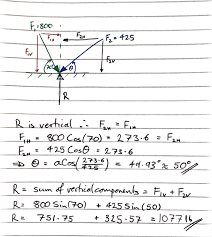 F₁=800 F₁ᵥ F₁H F₂H F₂=425 F₂ᵥ
70 θ
R
R is vertical ∴ F₂H = F₁H
F₁H = 800 Cos(70) = 273.6 = F₂H
F₂H = 425 Cosθ = 273.6
⇒ θ = aCos(273.6/425) = 49.93° ≈ 50°
R = sum of vertical components = F₁ᵥ + F₂ᵥ
R = 800 Sin(70) + 425 Sin(50)
R = 751.75 + 325.57 = 1077 lb